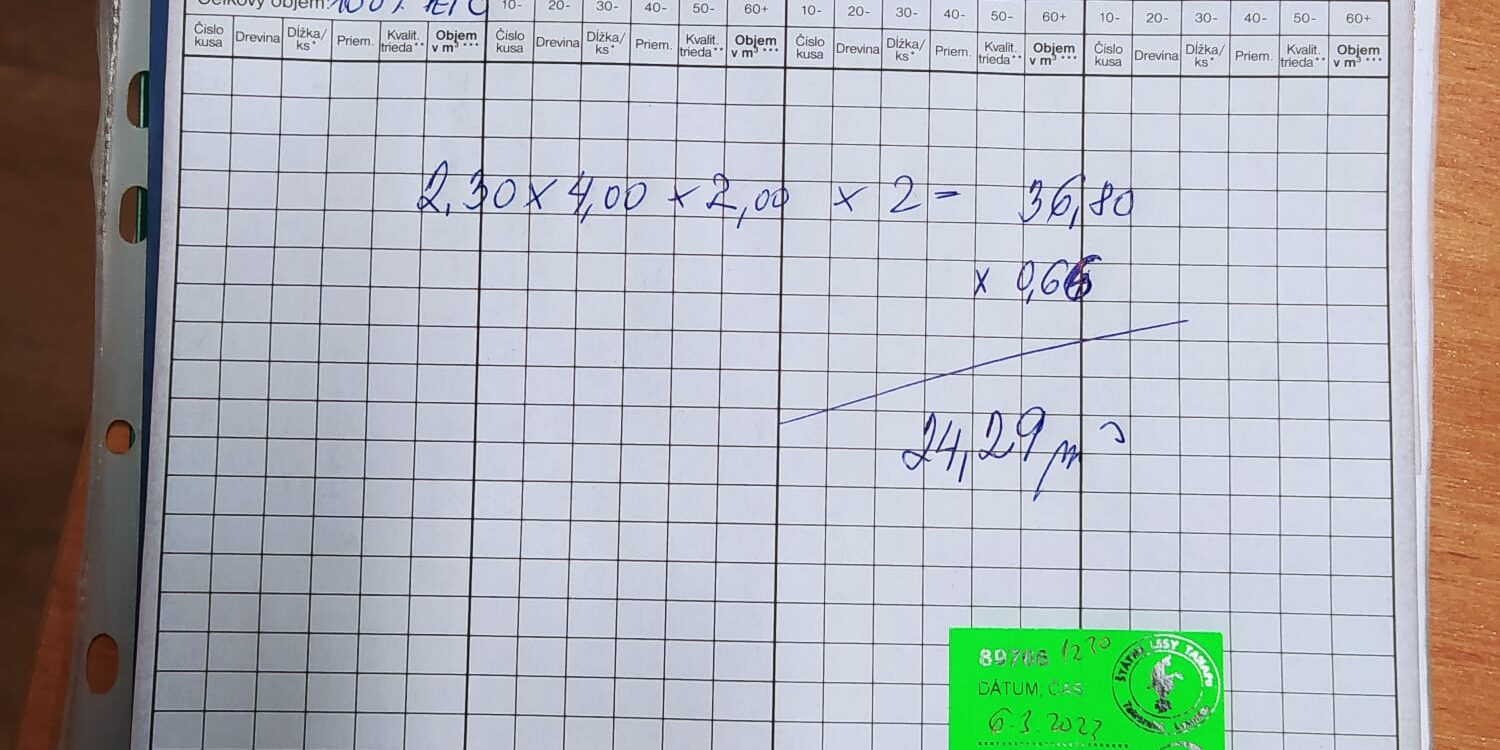 Celkový objem: 100%
10- 20- 30- 40- 50- 60+ 10- 20- 30- 40- 50- 60+ 10- 20- 30- 40- 50- 60+
Číslo kusa Drevina Dĺžka/ks* Priem. Kvalit. trieda** Objem v m³*** Číslo kusa Drevina Dĺžka/ks* Priem. Kvalit. trieda** Objem v m³*** Číslo kusa Drevina Dĺžka/ks* Priem. Kvalit. trieda** Objem v m³*** Číslo kusa Drevina Dĺžka/ks* Priem. Kvalit. trieda** Objem v m³***
2,30 x 4,00 x 2,00 x 2 = 36,80
x 0,66
24,29 m³
89706 12 20
DÁTUM, ČAS
ŠTÁTNE LESY TANAPU